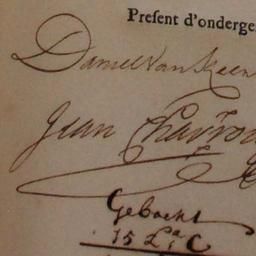 Present d'onderge
Daniel Van Keen
Jean Chavron
Geboekt
15 L.ª C